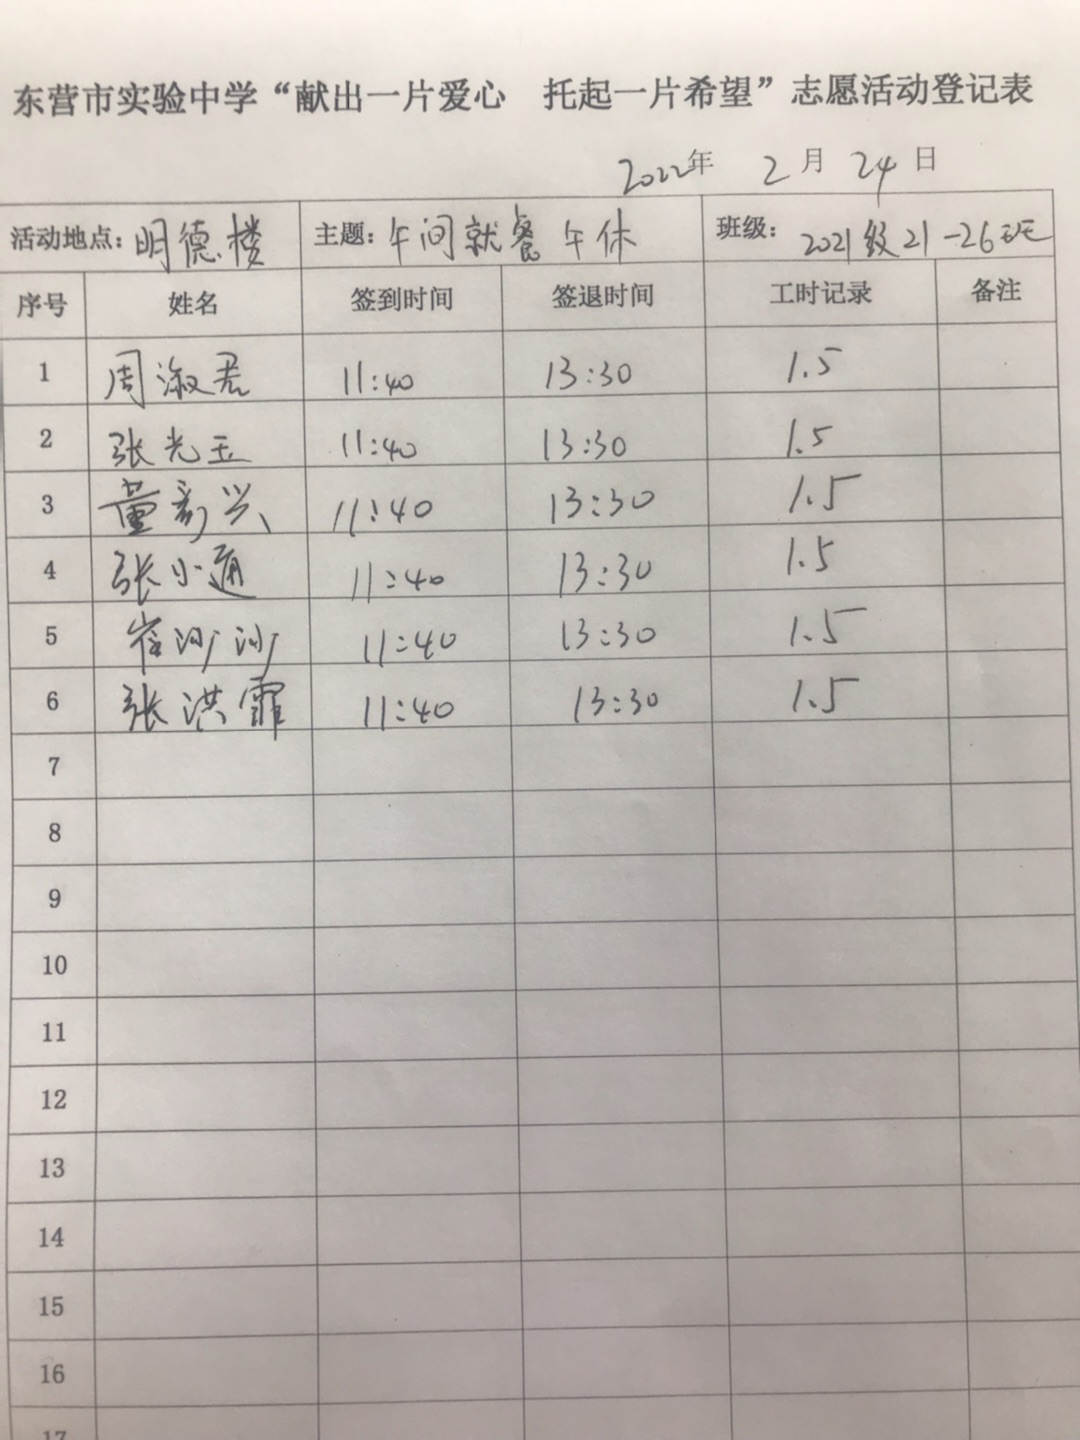 东营市实验中学“献出一片爱心 托起一片希望”志愿活动登记表
2022年 2月 24日
活动地点：明德楼 主题：午间就餐午休 班级：2021级21-26班
序号 姓名 签到时间 签退时间 工时记录 备注
1 周淑君 11:40 13:30 1.5
2 张光玉 11:40 13:30 1.5
3 董新兴 11:40 13:30 1.5
4 张小通 11:40 13:30 1.5
5 崔沙沙 11:40 13:30 1.5
6 张洪霏 11:40 13:30 1.5
7
8
9
10
11
12
13
14
15
16
17